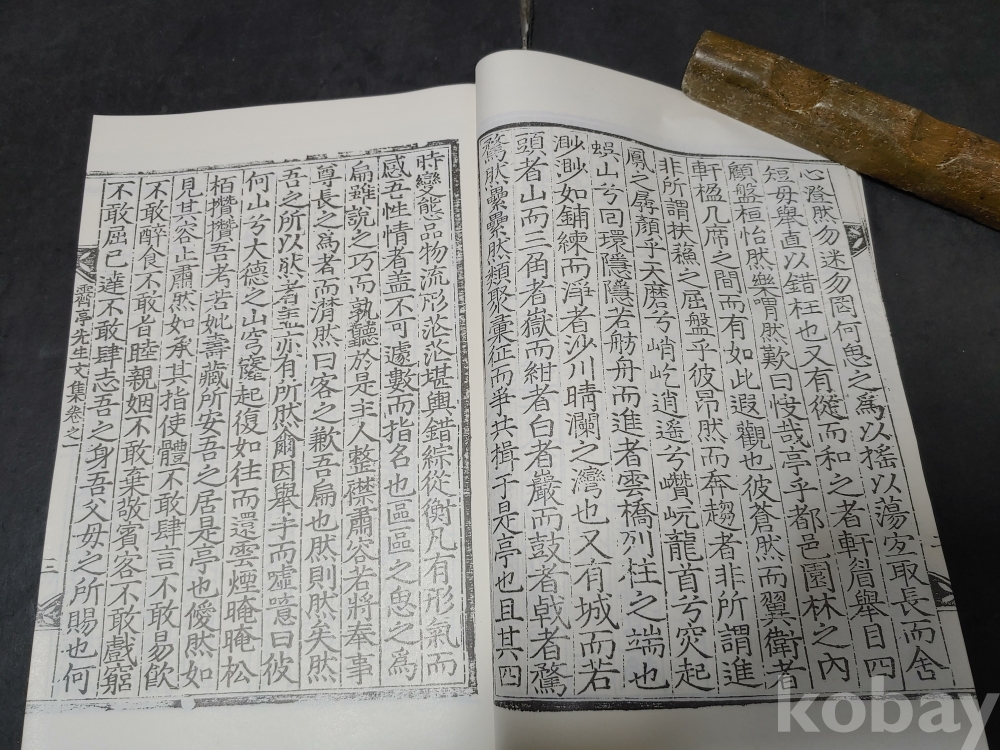 心澄然勿迷勿罔何思之爲以搖以蕩左取長而舍
短毋擧直以錯枉也又有從而和之者軒眉擧目四
顧盤桓怡然樂喟然歎曰快哉亭乎都邑園林之內
軒楹几席之間而有如此遐觀也彼蒼然而翼衛者
非所謂扶蘓之屈盤乎彼昂然而奔趨者非所謂進
鳳之孱顏乎天磨兮峭屹逍遙兮巑岏龍首兮突起
蜈山兮回環隱隱若舫舟而進者雲橋列柱之端也
渺渺如鋪練而淨者沙川晴瀾之灣也又有城而若
頭者山而三角者嶽而紺者白者巖而鼓者戟者騖
驚然纍纍然類聚彙征而爭共揖于是亭也且其四
時變態品物流形茫茫堪輿錯綜從衡凡有形氣而
感吾性情者盖不可遽數而指名也區區之思之爲
扁雖說之巧而孰聽於是主人整襟肅容若將奉事
尊長之爲者而潸然曰客之歉吾扁也然則然矣然
吾之所以然者盖亦有所然爾因擧手而噓噫曰彼
何山兮大德之山穹窿起復如往而還雲煙晻晻松
栢攢攢吾考若妣壽藏所安吾之居是亭也僾然如
見其容止肅然如承其指使體不敢肆言不敢易飮
不敢醉食不敢耆睦親姻不敢棄敬賓客不敢戲窮
不敢屈己達不敢肆志吾之身吾父母之所賜也何
霽亭先生文集卷之一
二
kobay